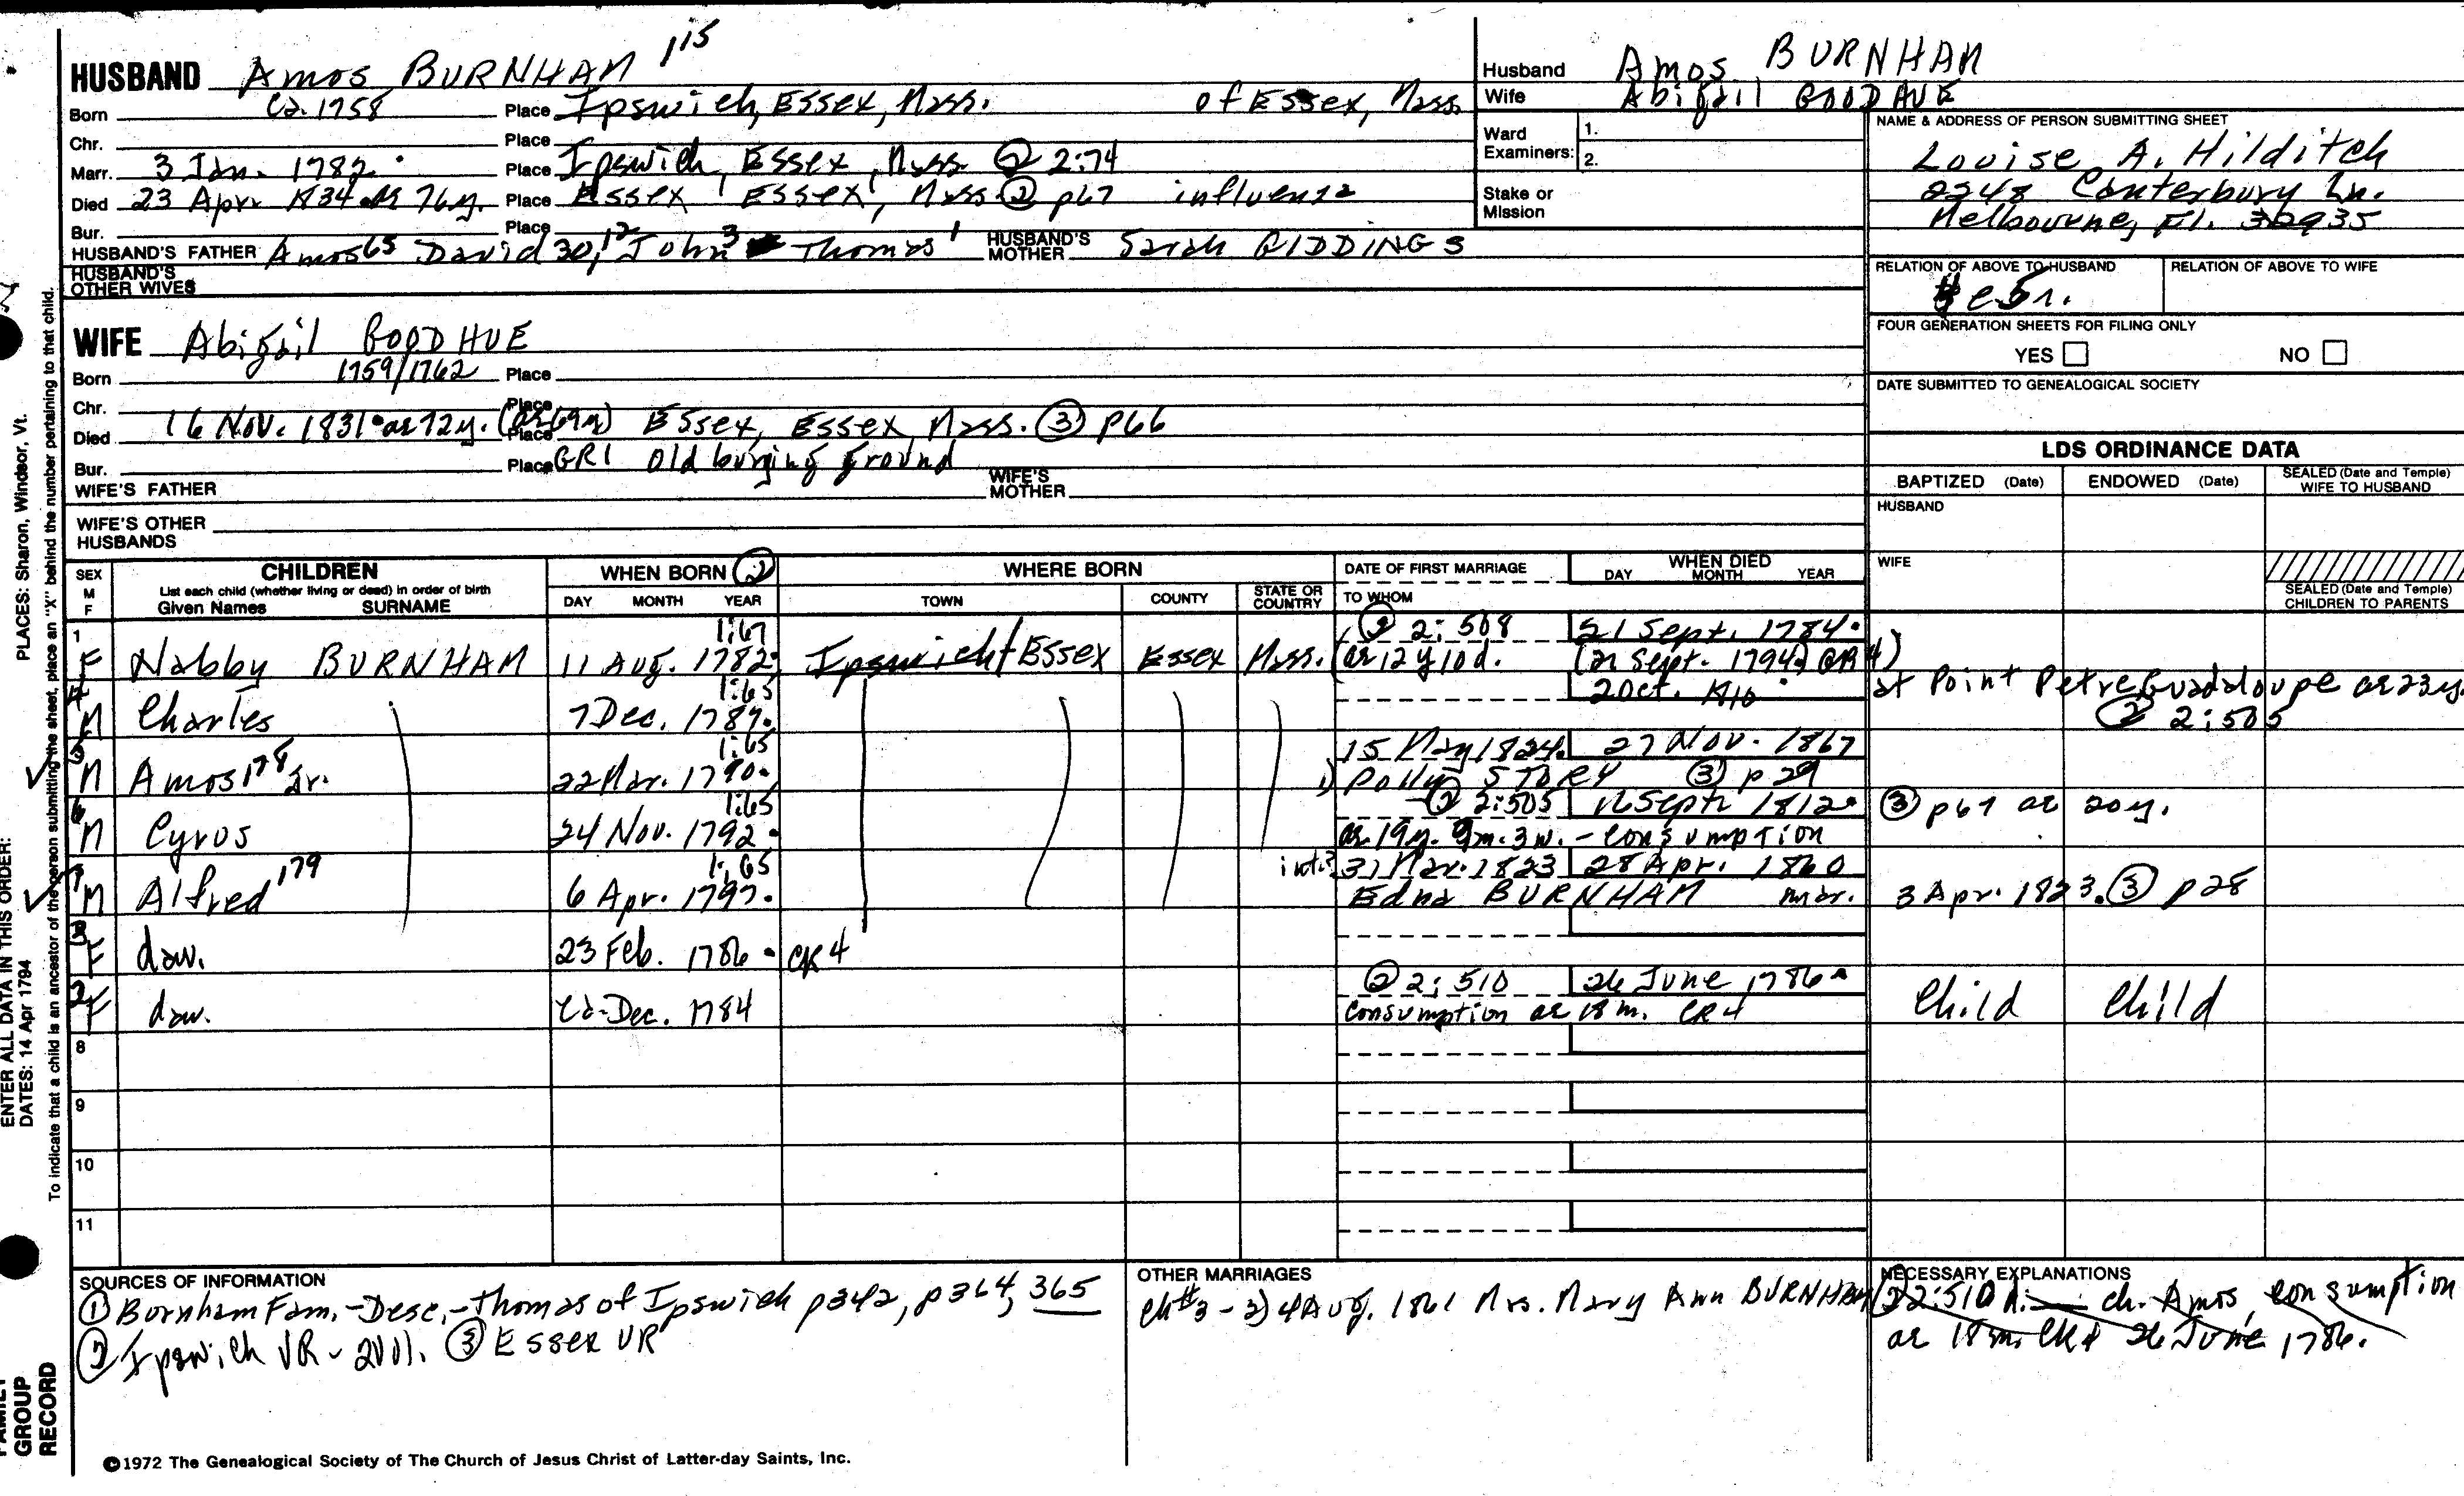 HUSBAND Amos BURNHAM 115
Born Ca. 1758 Place Ipswich, Essex, Mass. of Essex, Mass.
Chr. Place
Marr. 3 Jan. 1782. Place Ipswich, Essex, Mass. ② 2:74
Died 23 Apr. 1834 ae 76y. Place Essex, Essex, Mass. ③ p67 influenza
Bur. Place
HUSBAND'S FATHER Amos 65 David 30, John Thomas HUSBAND'S MOTHER Sarah GIDDINGS
HUSBAND'S OTHER WIVES
Husband Amos BURNHAM
Wife Abigail GOODHUE
Ward Examiners: 1.
2.
Stake or Mission
NAME & ADDRESS OF PERSON SUBMITTING SHEET
Louise A. Hilditch
2248 Canterbury Ln.
Melbourne, Fl. 32935
RELATION OF ABOVE TO HUSBAND RELATION OF ABOVE TO WIFE
FOUR GENERATION SHEETS FOR FILING ONLY
YES NO
DATE SUBMITTED TO GENEALOGICAL SOCIETY
WIFE Abigail GOODHUE
Born 1759/1762 Place
Chr. Place
Died 16 Nov. 1831. ae 72y. (ae 69y) Place Essex, Essex, Mass. ③ p66
Bur. Place GR1 Old burying ground
WIFE'S FATHER WIFE'S MOTHER
WIFE'S OTHER HUSBANDS
LDS ORDINANCE DATA
BAPTIZED (Date) ENDOWED (Date) SEALED (Date and Temple) WIFE TO HUSBAND
HUSBAND
WIFE
SEALED (Date and Temple) CHILDREN TO PARENTS
SEX M F
CHILDREN
List each child (whether living or dead) in order of birth
Given Names SURNAME
WHEN BORN ②
DAY MONTH YEAR
WHERE BORN
TOWN COUNTY STATE OR COUNTRY
DATE OF FIRST MARRIAGE
TO WHOM
WHEN DIED
DAY MONTH YEAR
1 1:67 ② 2:508 21 Sept. 1784.
F Nabby BURNHAM 11 Aug. 1782. Ipswich/Essex Essex Mass. (ae 12y 10d. (21 Sept. 1794.) GR4)
4 1:65 2 Oct. 1810 at Point Petre Guadaloupe ae 23y.
M Charles 7 Dec. 1787. ② 2:505
5 1:65 15 May 1824. 27 Nov. 1867
M Amos 178 Jr. 22 Mar. 1790. 1) Polly STORY ③ p 29
6 1:65 ② 2:505 16 Sept. 1812. ③ p67 ae 20y.
M Cyrus 24 Nov. 1792. ae 19y. 9m. 3w. - consumption
7 1:65 int. 31 Mar. 1823 28 Apr. 1860
M Alfred 179 6 Apr. 1797. Edna BURNHAM mar. 3 Apr. 1823. ③ p28
3
F dau. 23 Feb. 1786. CR4
2 ② 2:510 26 June 1786.
F dau. Ca. Dec. 1784 consumption ae 18m. CR4 Child Child
8
9
10
11
SOURCES OF INFORMATION
① Burnham Fam. - Desc. - Thomas of Ipswich p342, p364, 365
② Ipswich VR - 2Vol. ③ Essex VR
OTHER MARRIAGES
Ch#3 - 2) 4 Aug. 1861 Mrs. Mary Ann BURNHAM
NECESSARY EXPLANATIONS
② 2:510 ch. Amos, consumption
ae 18m. CR4 26 June 1786.
©1972 The Genealogical Society of The Church of Jesus Christ of Latter-day Saints, Inc.
PLACES: Sharon, Windsor, Vt.
ENTER ALL DATA IN THIS ORDER:
DATES: 14 Apr 1794
To indicate that a child is an ancestor of the person submitting the sheet, place an "X" behind the number pertaining to that child.
FAMILY GROUP RECORD